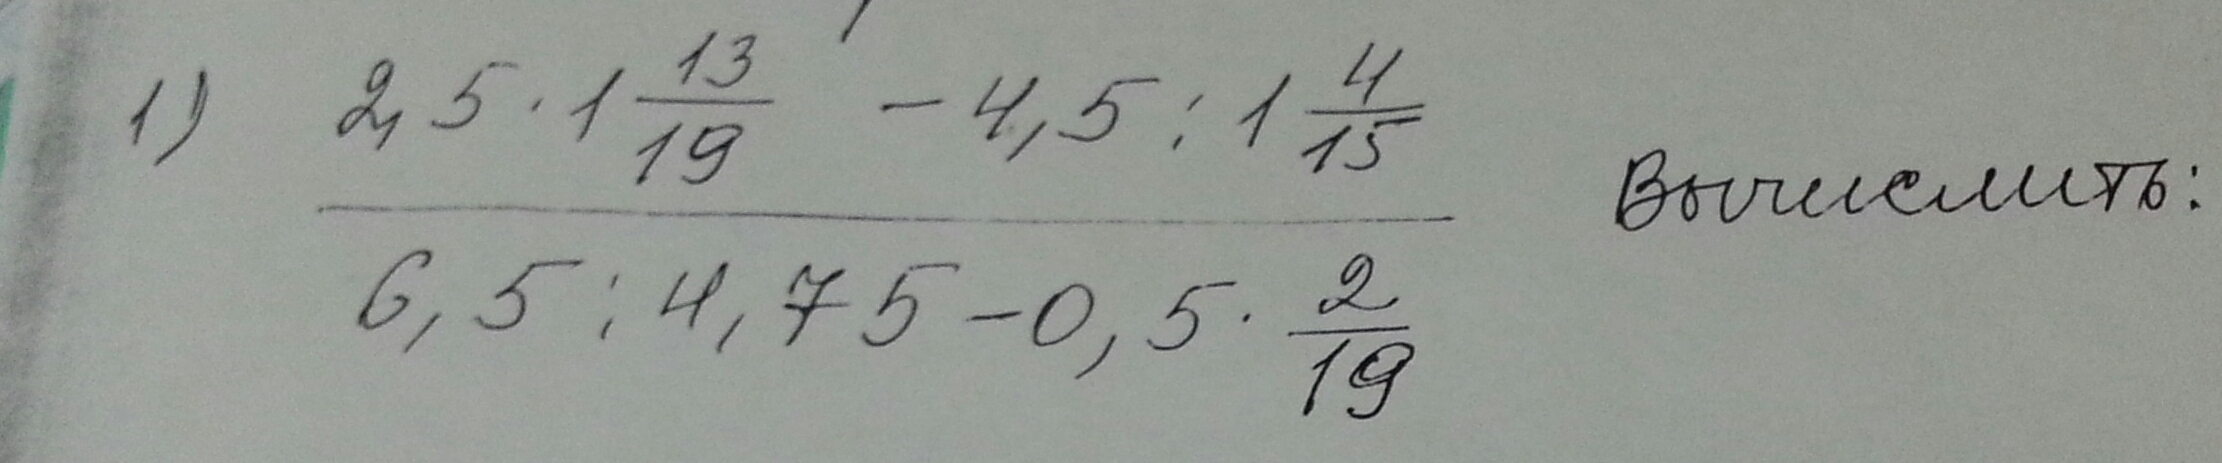 1) (2,5 · 1 13/19 - 4,5 : 1 4/15) / (6,5 : 4,75 - 0,5 · 2/19) Вычислить: